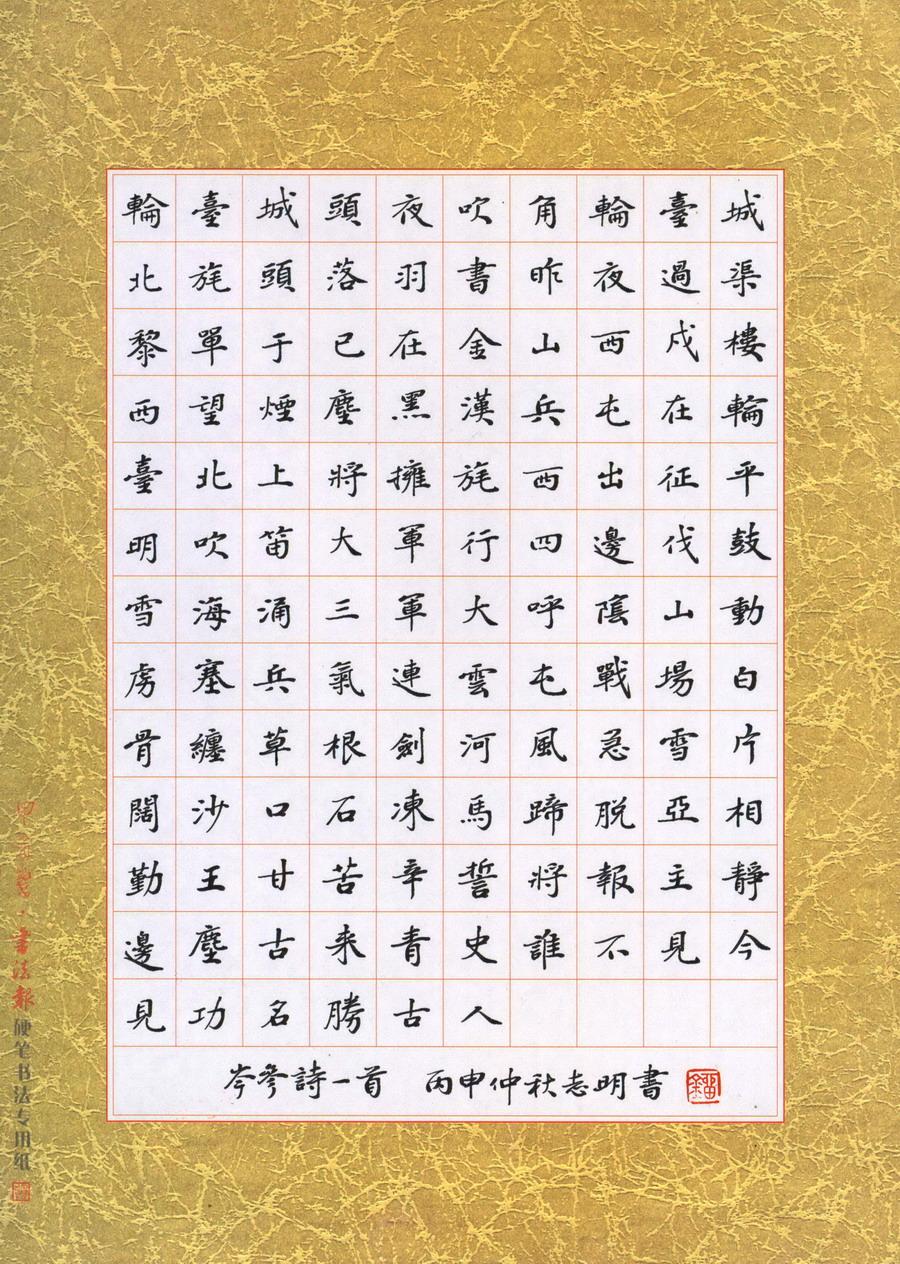 輪臺城頭夜吹角輪臺城
北旄頭落羽書昨夜過渠
黎單于已在金山西戍樓
西望煙塵黑漢兵屯在輪
臺北上將擁旄西出征平
明吹笛大軍行四邊伐鼓
雪海涌三軍大呼陰山動
虜塞兵氣連雲屯戰場白
骨纏草根劍河風急雪片
闊沙口石凍馬蹄脫亞相
勤王甘苦辛誓將報主靜
邊塵古來青史誰不見今
見功名勝古人
岑參詩一首 丙申仲秋志明書
書法報硬笔书法专用纸